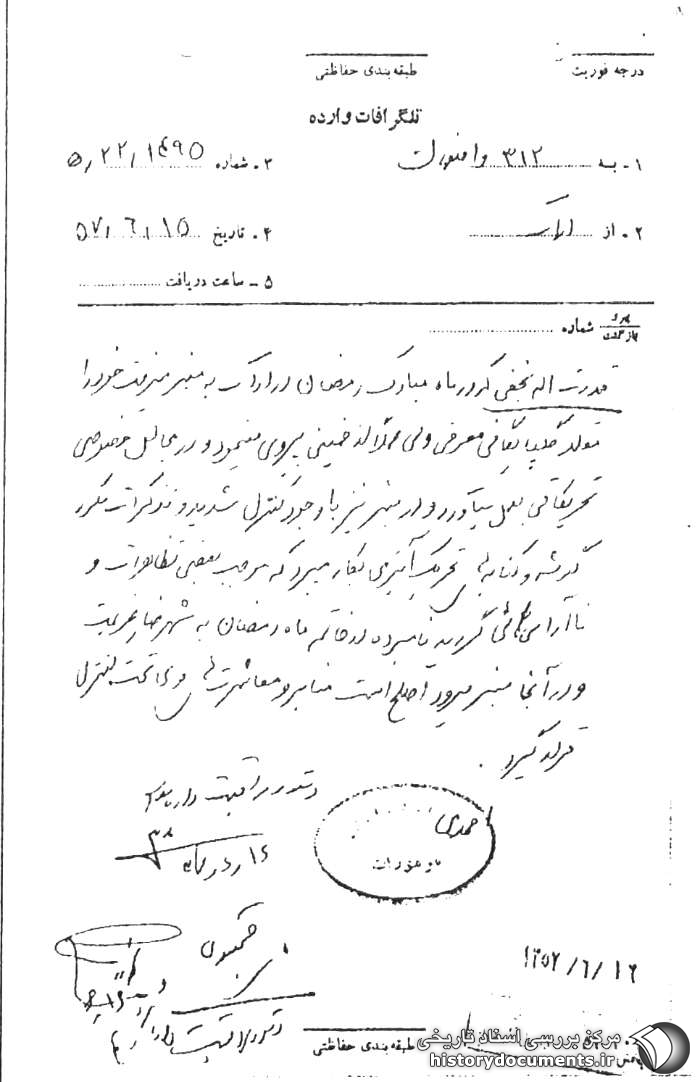 درجه فوریت
طبقه‌بندی حفاظتی
تلگرافات وارده
۱ - به ۳۱۲
۳ - شماره ۵٫۲۲٫۱۴۹۵
۲ - از اراک
۴ - تاریخ ۵۷٫۶٫۱۵
۵ - ساعت دریافت
شماره
قدرت اله نجفی که در ماه مبارک رمضان در اراک به منبر میرفت خود را
مقلد گلپایگانی معرفی ولی عملا از خمینی پیروی مینمود و در محافل خصوصی
تحریکاتی بعمل میآورد و در منبر نیز با وجود کنترل شدید و تذکرات مکرر
گوشه و کنایه های تحریک آمیزی بکار میبرد که موجب بعضی تظاهرات و
ناآرامی هائی گردید نامبرده در خاتمه ماه رمضان به شهرضا عزیمت
و در آنجا منبر میرود اصلح است منابر و معاشرت های وی تحت کنترل
قرار گیرد.
احمدی
دستور مراقبت داده شود
۱۶
۱۳۵۷/۶/۱۶
طبقه‌بندی حفاظتی
مرکز بررسی اسناد تاریخی
historydocuments.ir